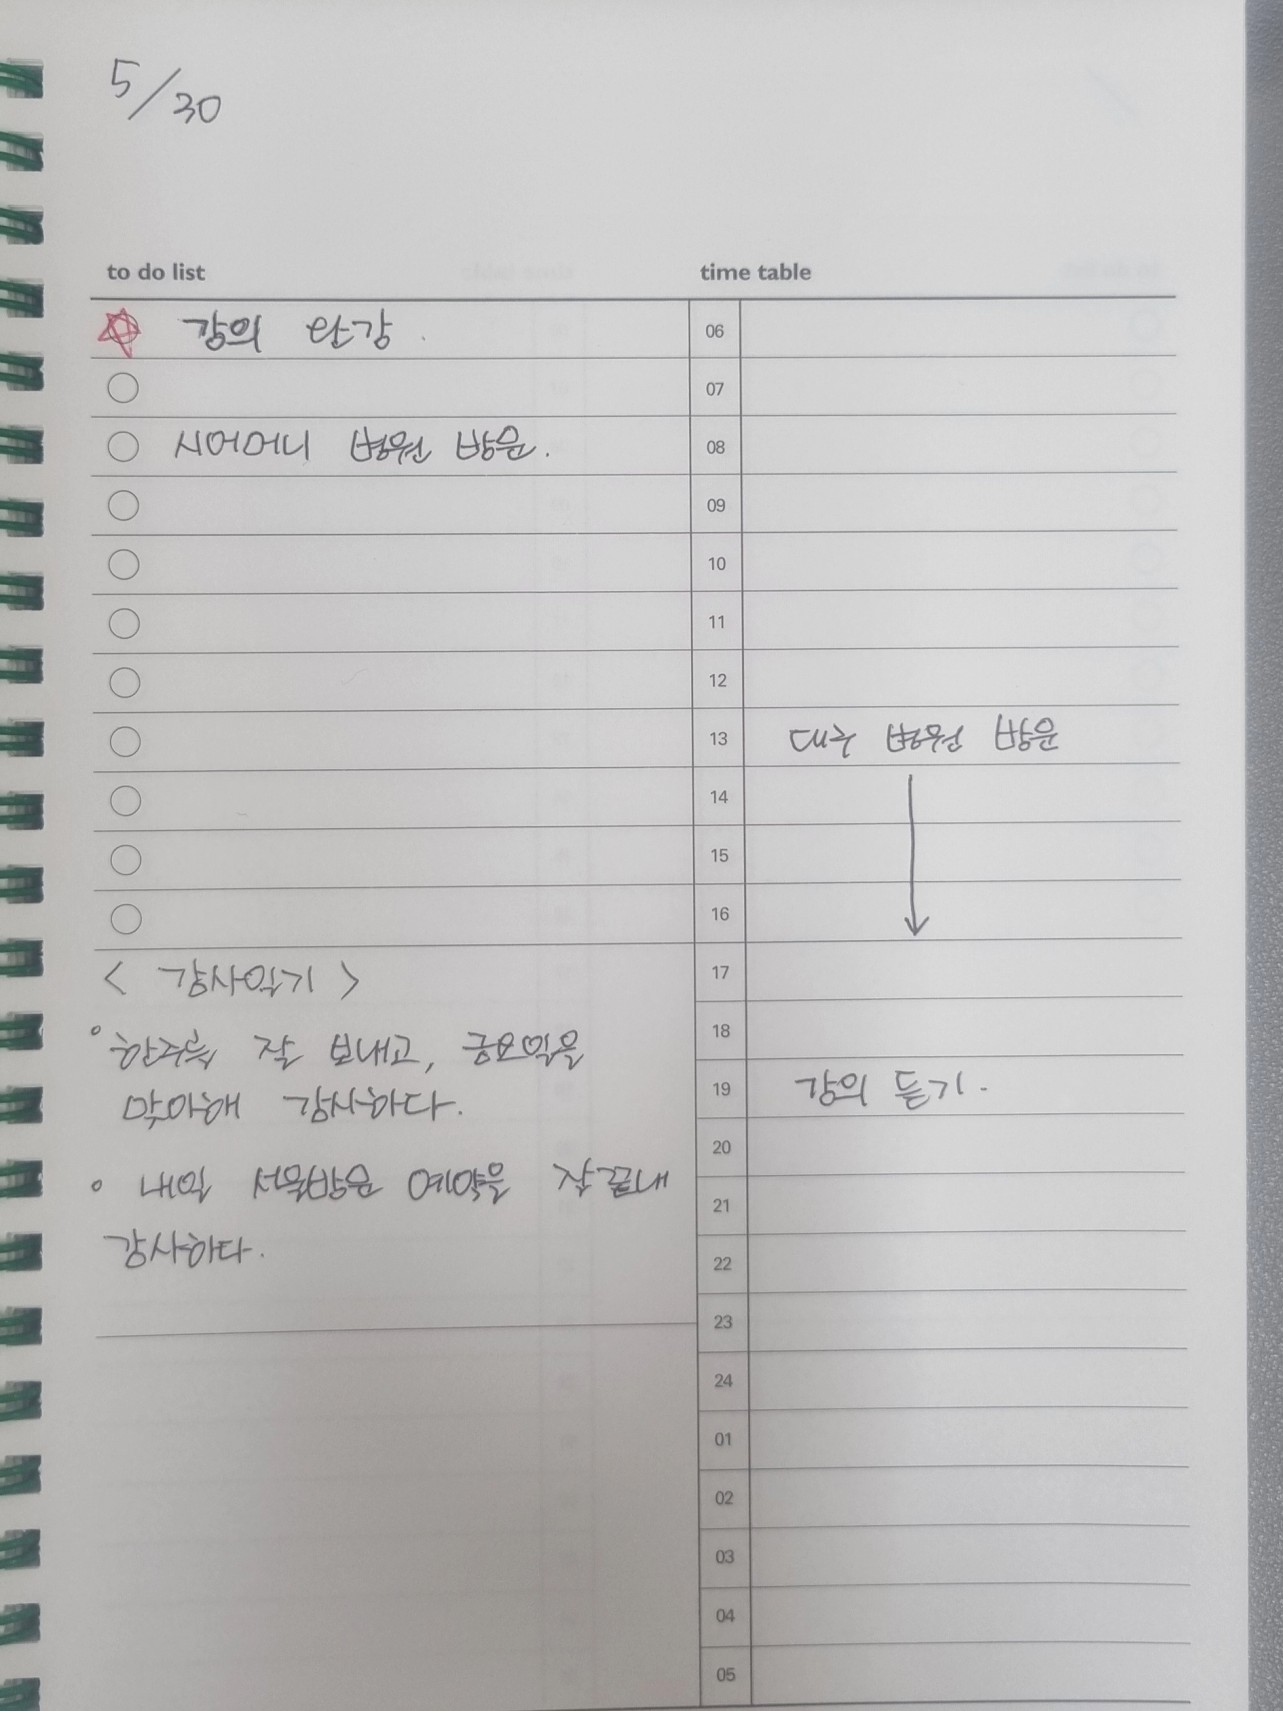 5/30
to do list
time table
강의 완강.
시어머니 병원 방문.
06
07
08
09
10
11
12
13 대구 병원 방문
14
15
16
17
18
19 강의 듣기.
20
21
22
23
24
01
02
03
04
05
< 감사일기 >
한주를 잘 보내고, 금요일을
맞이해 감사하다.
내일 서울방문 예약을 잘끝내
감사하다.